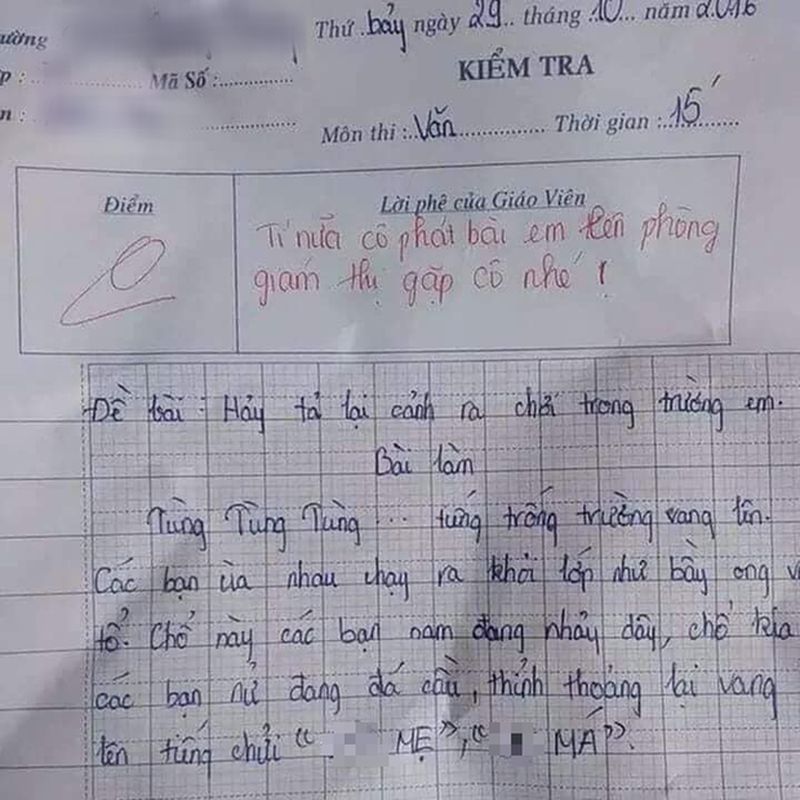 ường
Thứ bảy ngày 29.. tháng .10... năm 2.016
p : .................... Mã Số:..............
KIỂM TRA
n :
Môn thi :.Văn............... Thời gian :.15'.........
Điểm
Lời phê của Giáo Viên
Tí nữa cô phát bài em lên phòng
giám thị gặp cô nhé !
Đề bài : Hảy tả lại cảnh ra chơi trong trường em.
Bài làm
Tùng Tùng Tùng ... tiếng trống trường vang lên.
Các bạn ùa nhau chạy ra khỏi lớp như bầy ong v
tổ. Chổ này các bạn nam đang nhảy dây, chổ kia
các bạn nử đang đá cầu, thỉnh thoảng lại vang
lên tiếng chửi " MẸ", " MÁ".